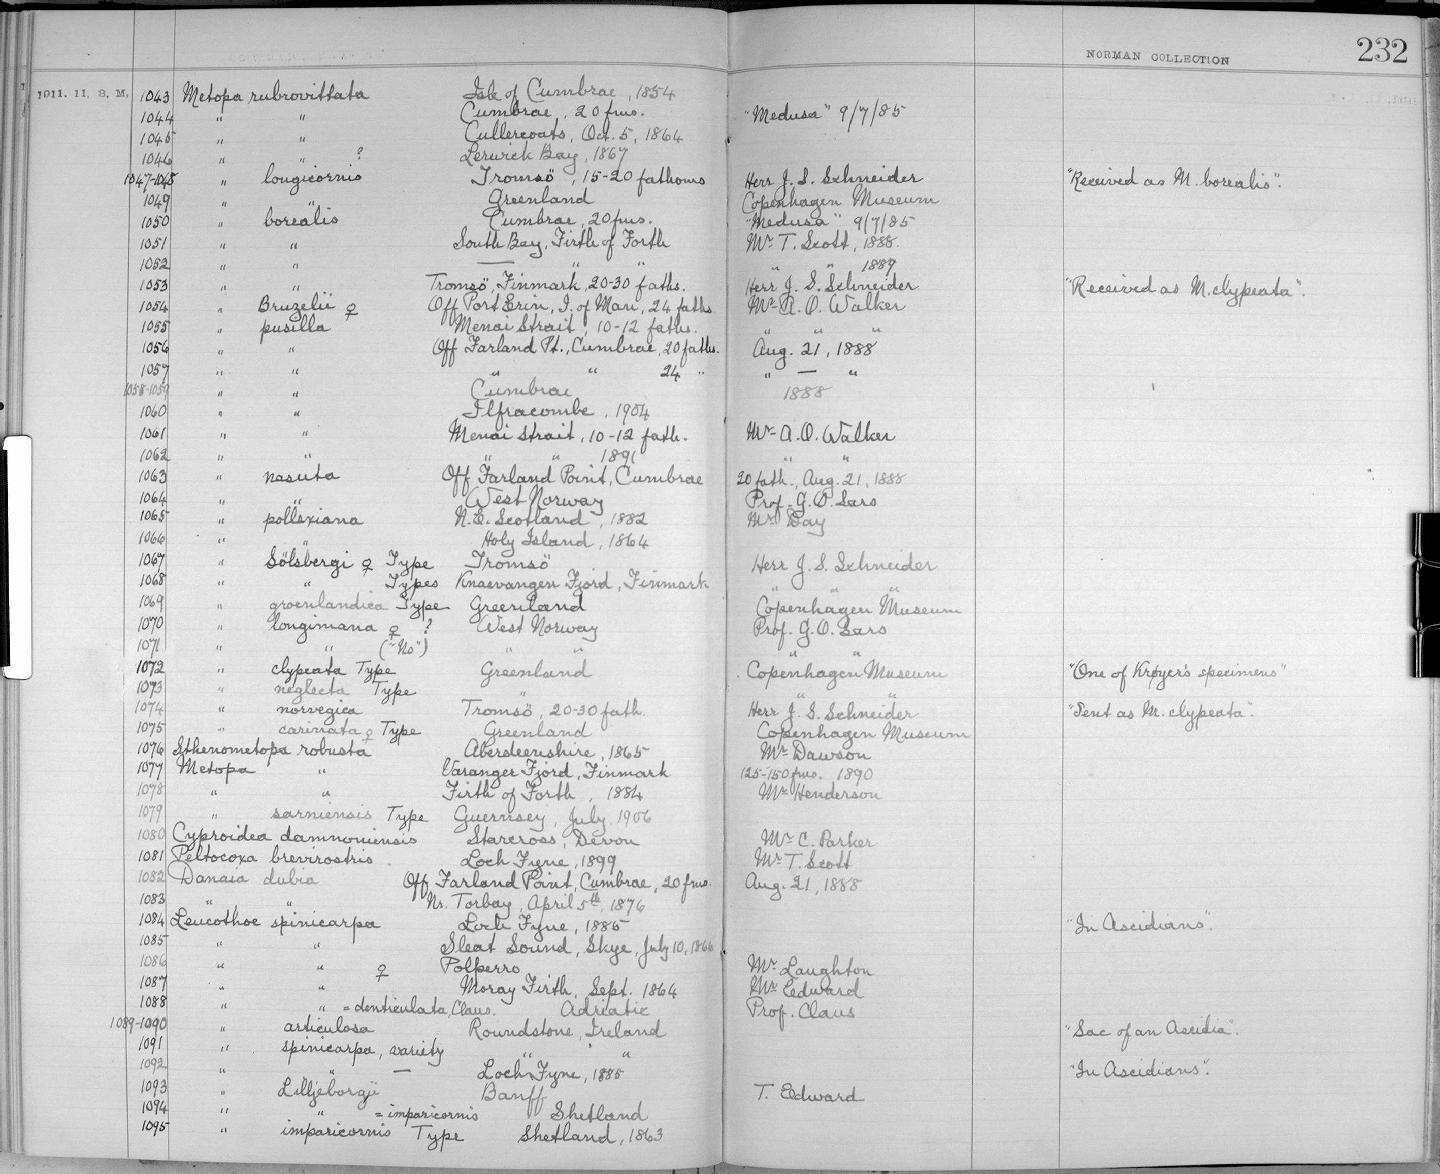 NORMAN COLLECTION 232
1911. 11. 8. M. 1043 Metopa rubrovittata Isle of Cumbrae, 1854
1044 " " Cumbrae, 20 fms. "Medusa" 9/7/85
1045 " " Cullercoats, Oct. 5, 1864
1046 " " ? Lerwick Bay, 1867
1047-1048 " longicornis Tromsö, 15-20 fathoms Herr J. S. Schneider "Received as M. borealis".
1049 " " Greenland Copenhagen Museum
1050 " borealis Cumbrae, 20 fms. "Medusa" 9/7/85
1051 " " South Bay, Firth of Forth Mr T. Scott, 1888.
1052 " " — " " " " 1889
1053 " " Tromsö, Finmark, 20-30 faths. Herr J. S. Schneider "Received as M. clypeata".
1054 " Bruzelii ♀ Off Port Erin, I. of Man, 24 faths Mr A. O. Walker
1055 " pusilla Menai Strait, 10-12 faths. " " "
1056 " " Off Farland Pt., Cumbrae, 20 faths. Aug. 21, 1888
1057 " " " " 24 " " — "
1058-1059 " " Cumbrae 1888
1060 " " Ilfracombe, 1904
1061 " " Menai Strait, 10-12 fath. Mr A. O. Walker
1062 " " " " 1891 " "
1063 " nasuta Off Farland Point, Cumbrae 20 fath., Aug. 21, 1888
1064 " " West Norway Prof. G. O. Sars
1065 " pollexiana N. E. Scotland, 1882 Mr Day
1066 " " Holy Island, 1864
1067 " Sölsbergi ♀ Type Tromsö Herr J. S. Schneider
1068 " " Types Knaevangen Fjord, Finmark " " "
1069 " groenlandica Type Greenland Copenhagen Museum
1070 " longimana ♀ ? West Norway Prof. G. O. Sars
1071 " " ("No") " " " "
1072 " clypeata Type Greenland Copenhagen Museum "One of Krøyer's specimens"
1073 " neglecta Type " " "
1074 " norvegica Tromsö, 20-30 fath. Herr J. S. Schneider "Sent as M. clypeata".
1075 " carinata ♀ Type Greenland Copenhagen Museum
1076 Sthenometopa robusta Aberdeenshire, 1865 Mr Dawson
1077 Metopa " Varanger Fjord, Finmark 125-150 fms. 1890
1078 " " Firth of Forth, 1884 Mr Henderson
1079 " sarniensis Type Guernsey, July 1906
1080 Cyproidea damnoniensis Starcross, Devon Mr C. Parker
1081 Peltocoxa brevirostris Loch Fyne, 1899 Mr T. Scott
1082 Danaia dubia Off Farland Point, Cumbrae, 20 fms. Aug. 21, 1888
1083 " " Nr. Torbay, April 5th, 1876
1084 Leucothoe spinicarpa Loch Fyne, 1885 "In Ascidians".
1085 " " Sleat Sound, Skye, July 10, 1866
1086 " " ♀ Polperro Mr Laughton
1087 " " Moray Firth, Sept. 1864 Mr Edward
1088 " " = denticulata, Claus. Adriatic Prof. Claus
1089-1090 " articulosa Roundstone, Ireland "Sac of an Ascidia".
1091 " spinicarpa, variety " "
1092 " " — Loch Fyne, 1885 "In Ascidians".
1093 " Lilljeborgii Banff T. Edward
1094 " " = imparicornis Shetland
1095 " imparicornis Type Shetland, 1863